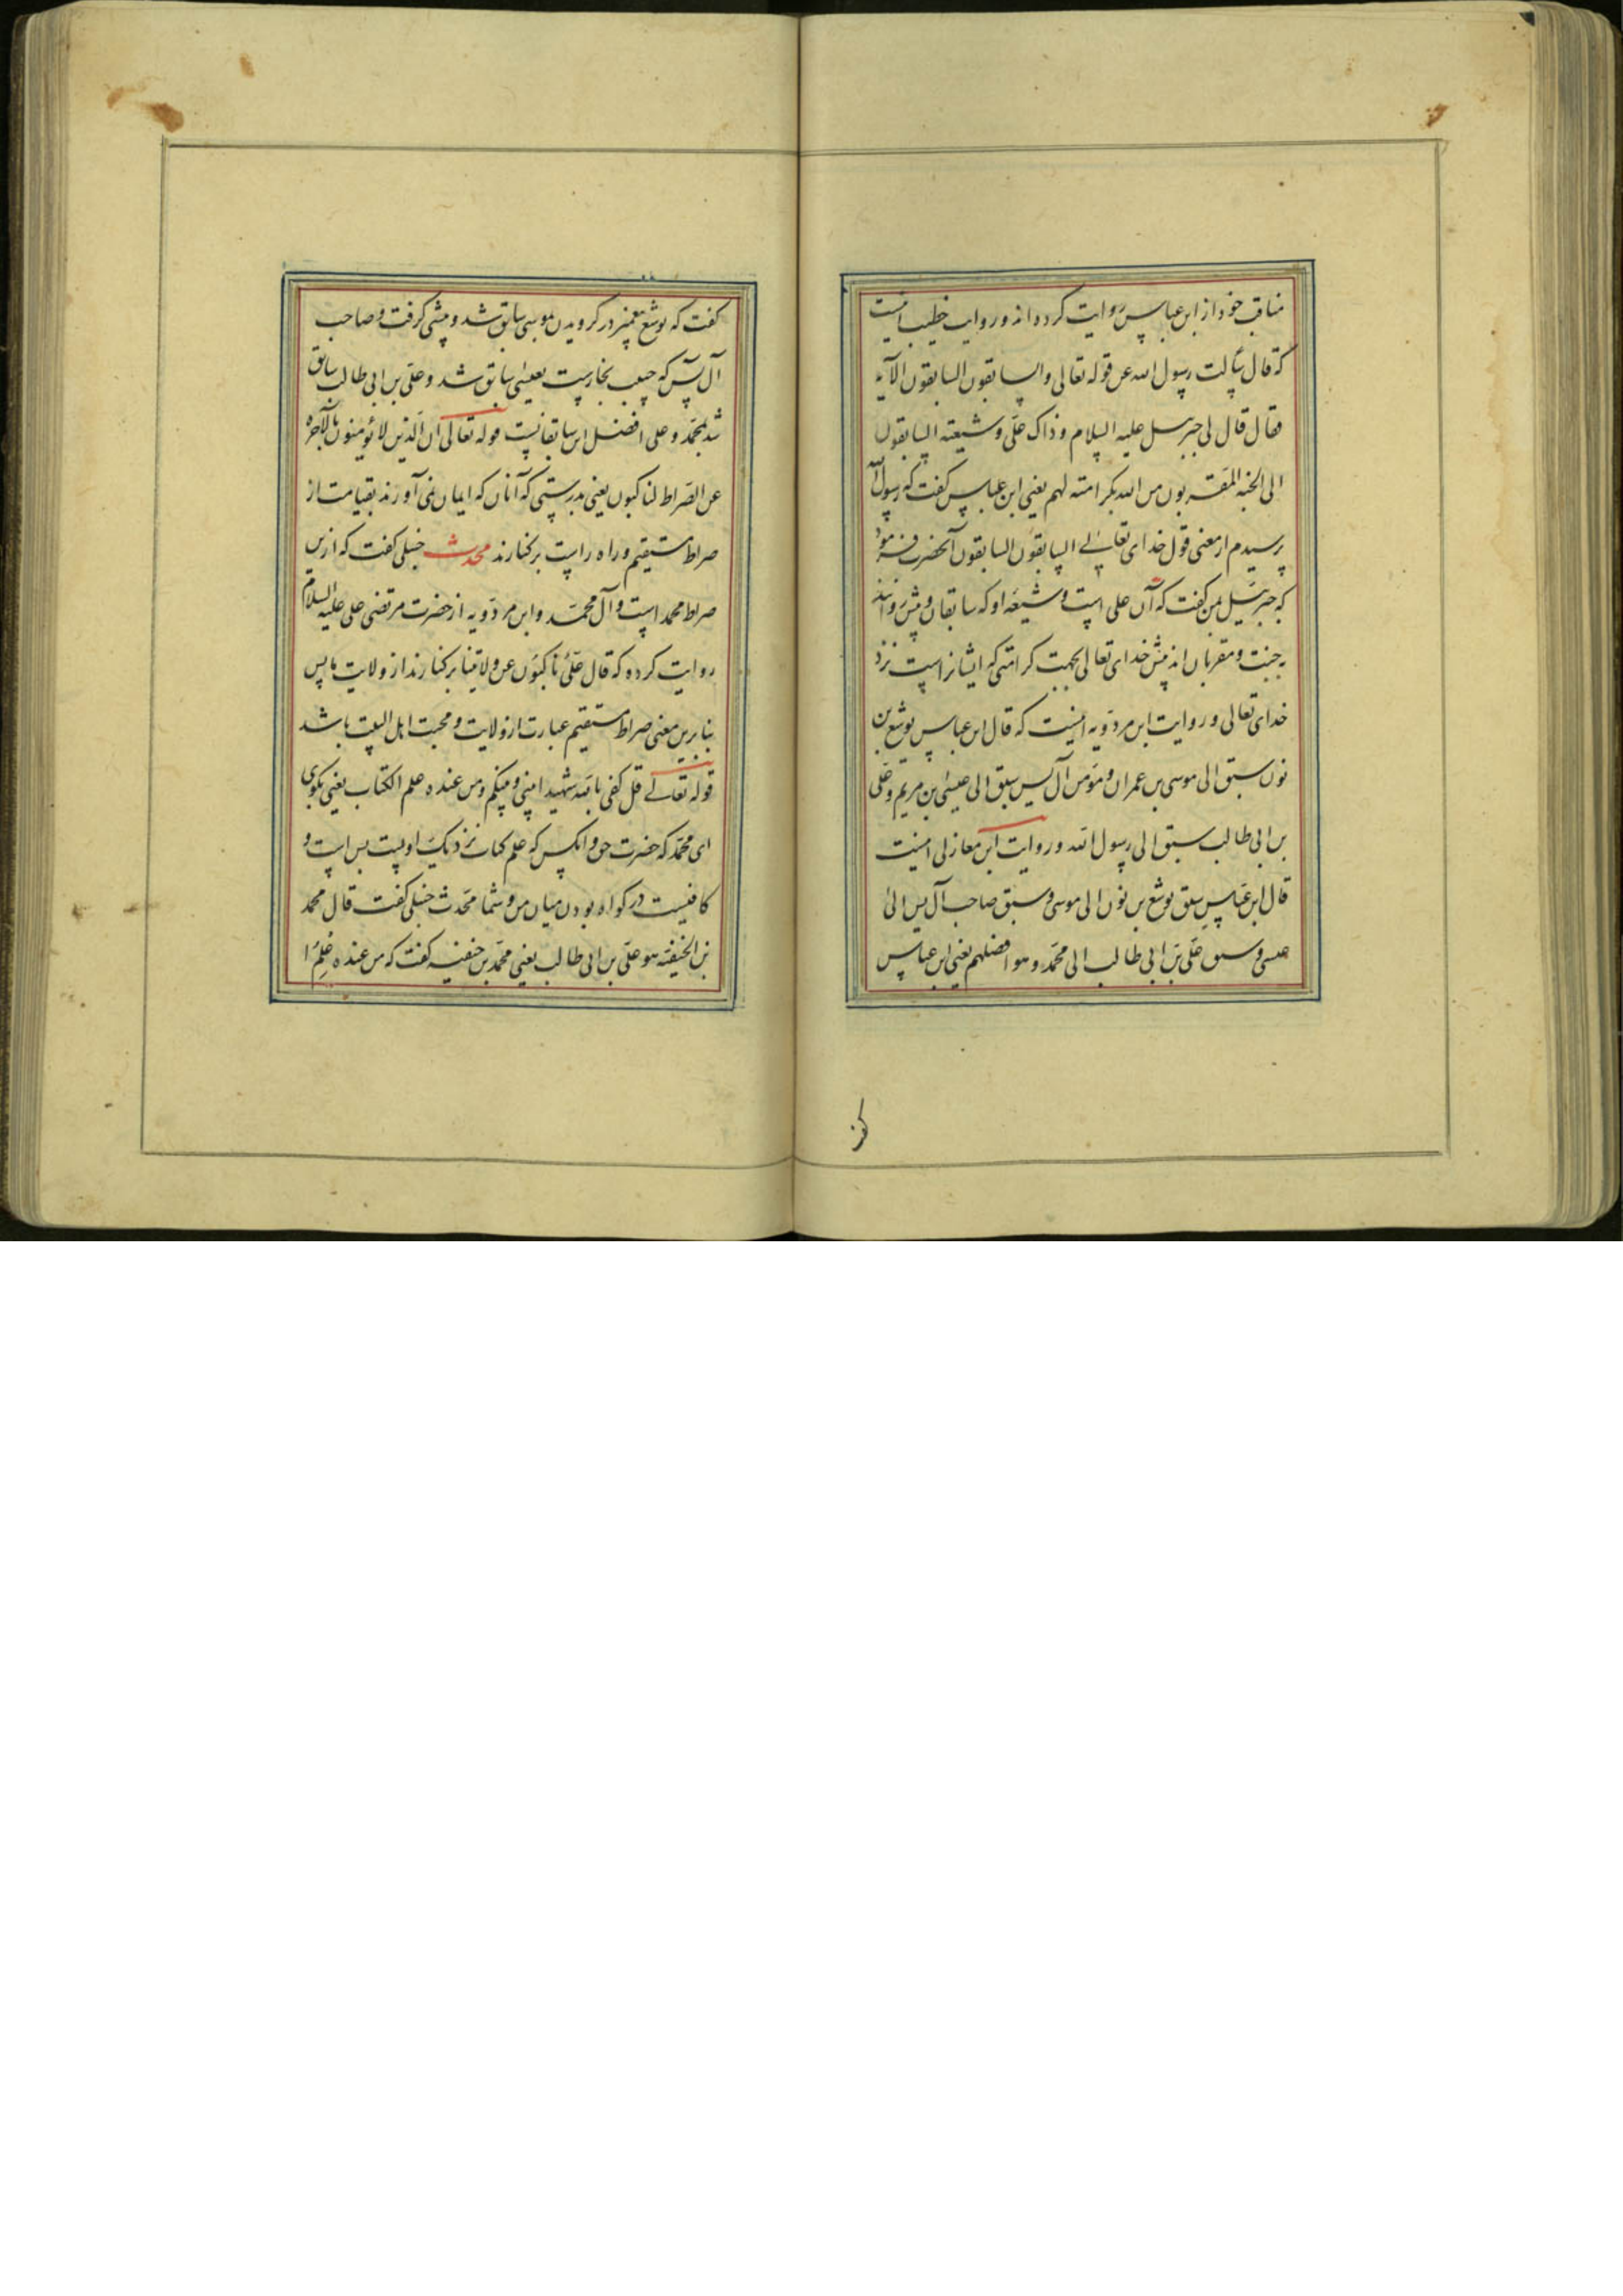 مناقب خود از ابن عباس روایت کرده‌اند و روایت خطیب اینست
که قال سألت رسول الله عن قوله تعالی والسابقون السابقون الآیه
فقال قال لی جبرئیل علیه السلام و ذاک علی و شیعته السابقون
الی الجنه المقربون من الله بکرامته لهم یعنی ابن عباس کفت که رسول الله
پرسیدم از معنی قول خدای تعالی السابقون السابقون آنحضرت فرمود
که جبرئیل بمن کفت که آن علی است و شیعه او که سابقان و پیش روانند
به جنت و مقربان اند پیش خدای تعالی بجهت کرامتی که ایشانراست نزد
خدای تعالی و روایت ابن مردویه اینست که قال ابن عباس یوشع بن
نون سبق الی موسی بن عمران و مؤمن آل یس سبق الی عیسی بن مریم و علی
بن ابی طالب سبق الی رسول الله و روایت ابن مغازلی اینست
قال ابن عباس سبق یوشع بن نون الی موسی و سبق صاحب آل یس الی
عیسی و سبق علی بن ابی طالب الی محمد و هو افضلهم یعنی ابن عباس
کفت
کفت که یوشع پیغمبر در کرویدن بموسی سابق شد و پیشی کرفت و صاحب
آل یس که حبیب نجارست بعیسی سابق شد و علی بن ابی طالب سابق
شد بمحمد و علی افضل این سابقانست قوله تعالی ان الذین لا یؤمنون بالآخره
عن الصراط لناکبون یعنی بدرستی که آنان که ایمان نمی آورند بقیامت از
صراط مستقیم و راه راست برکنارند محدث حنبلی کفت که ازین
صراط محمد است و آل محمد و ابن مردویه از حضرت مرتضی علی علیه السلام
روایت کرده که قال علی ناکبون عن ولایتنا برکنارند از ولایت ما پس
بنابرین معنی صراط مستقیم عبارت از ولایت و محبت اهل البیت باشد
قوله تعالی قل کفی بالله شهیدا بینی و بینکم و من عنده علم الکتاب یعنی بکوی
ای محمد که حضرت حق و آنکس که علم کتاب نزدیک اوست بس است و
کافیست در کواه بودن میان من و شما محدث حنبلی کفت قال محمد
بن الحنیفه هو علی بن ابی طالب یعنی محمد بن حنفیه کفت که من عنده علم ا